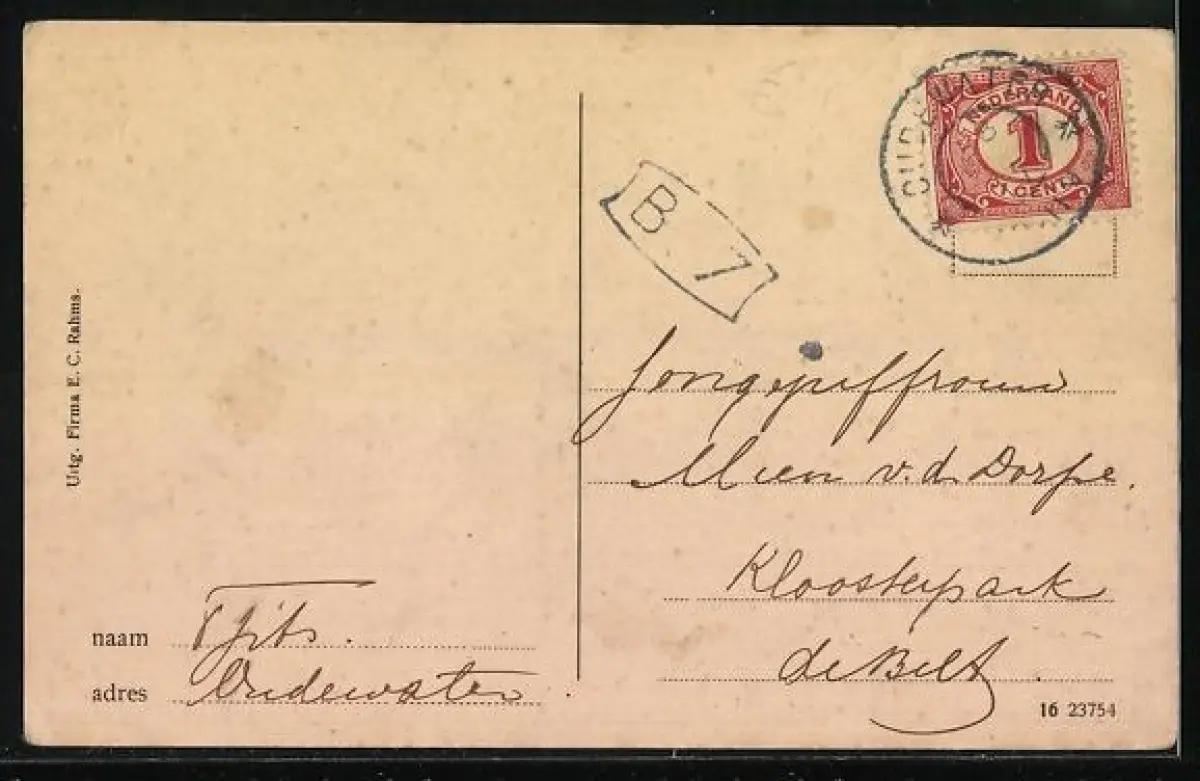 Uitg. Firma E. C. Rahms.
OUDEWATER
NEDERLAND
1
1 CENT
B 7
Jongejuffrouw
Mien v.d. Dorpe.
Kloosterpark
de Bilt.
naam
adres Oudewater.
16 23754